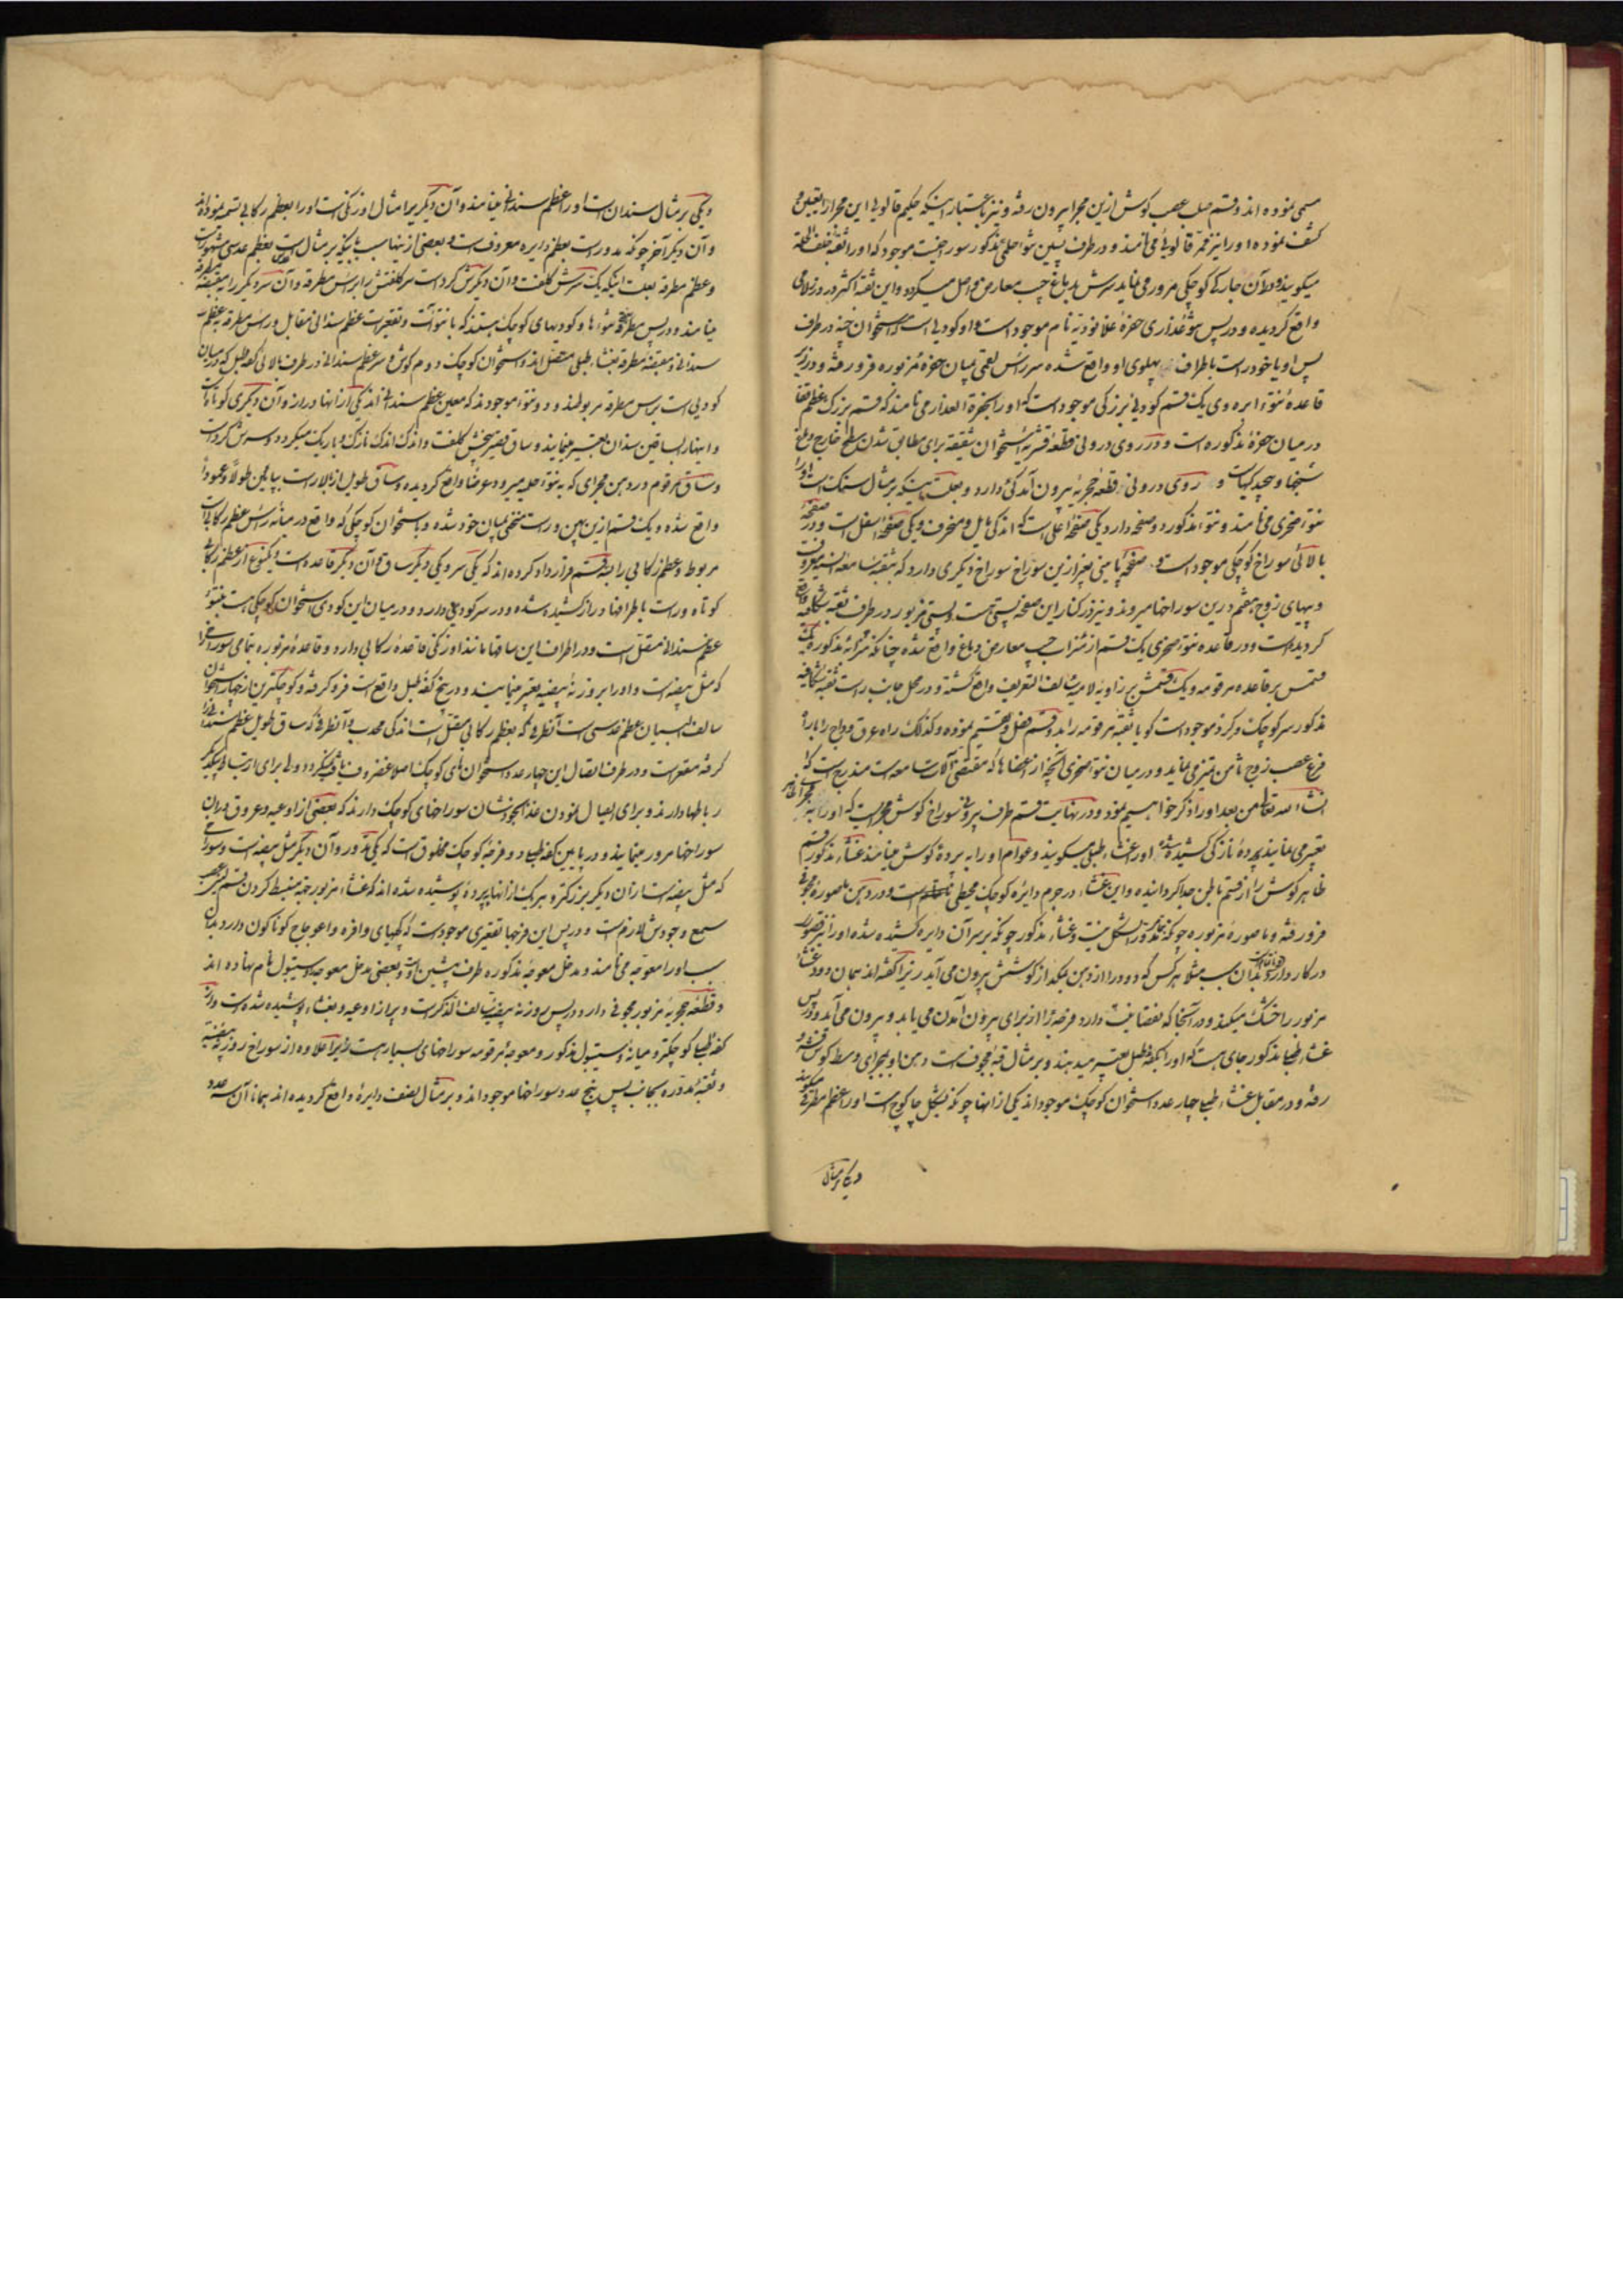 مسمی نموده اند و قسم صلب عصب کوش ازین مجرا بیرون رفته و نیز باعتبار اینکه حکیم فالوپی این مجرا را تعیین و
کشف نموده اورا نیز ممر فالوپی می‌نامند و در طرف پسین نتوء حلمی مذکور سوراخیست موجود که اورا ثقبه خلف الحلمة
میکویند و آن جارکی کوچکی مرور می‌نماید
واقع کردیده و در پس موجود است و او کودیی است که استخوان چنه در طرف
پس او با خود راست باطراف پهلوی او واقع شده میان حفرهٔ مزبوره فرو رفته و در زیر
قاعدهٔ نتوء ابره وی یک قسم کودیی بزرکی موجود است که اورا می نامند که قسم بزرک
در میان حفرهٔ مذکوره است و در روی درونی قطعهٔ قشریهٔ استخوان شقیقه برای مطابق شدن سطح خارج دماغ
و روی درونی قطعهٔ حجریه بیرون آمدکی دارد و بعلت اینکه بر مثال سنک است اورا
نتوء صخری می نامند و نتوء مذکور دو صفحه دارد یکی صفحهٔ اعلی است که اندکی مایل و منحرف و یکی صفحهٔ اسفل است و در صفحهٔ
بالائی سوراخ کوچکی موجود است و صفحهٔ پایینی بغیر ازین سوراخ سوراخ دیکری دارد که بثقبهٔ سامعهٔ انسیه معروف
و پیهای زوج هفتم درین سوراخها میروند و نیز در کنار این صفحه پستی هست و پستی مزبور در طرف ثقبه
کردیده است و در قاعدهٔ نتوء صخری یک قسم از میزاب جیب معارض دماغ واقع شده چنانکه میزاب مذکوره یک
قسمش بر قاعدهٔ مرقومه و یک قسمش بر زاویهٔ لامیهٔ سالف التعریف واقع کشته و در محل جانب راست ثقبه
مذکور سر کوچک و کرد موجود است کویا ثقبهٔ مرقومه را بدو قسم فصل و تقسیم نموده و کذلک راه عروق
فرع عصب زوج ثامن متمیز می‌نماید و در میان نتوء صخری آنچه از اعضاها که مقتضی آلات سامعه است مندرج است که
انشاء الله تعالی من بعد اورا ذکر خواهیم نمود و در نهایت قسم طرف بیرونی سوراخ کوش مجراییست که اورا به
تعبیر می نمایند پردهٔ نازکی کشیده شده اورا غشاء طبلی میکویند و عوام اورا به پردهٔ کوش مینامند غشاء مذکور قسم
ظاهر کوش را از قسم باطن جدا کردانیده و این غشاء در جرم دایرهٔ کوچک محیطی است و در دهن
فرو رفته و ناصورهٔ مزبوره چونکه مدور الشکل نیست و غشاء مذکور چونکه بر سر آن دایره کشیده شده اورا نیز قصور
درکار دارد بدان سبب مثلا هرکس که دود را از دهن میکشد از کوشش بیرون می آید زیرا کفته اند همان دود غشاء
مزبور را خشک میکند و در آنجا که نقصانیت دارد فرجه را از برای بیرون آمدن می یابد و بیرون می آید و در پس
غشاء طبلی مذکور جای هست که اورا بکفهٔ طبل تعبیر میدهند و بر مثال قبهٔ مجوف است دهن او بمجرای وسط کوش
رفته و در مقابل غشاء طبلی چهار عدد استخوان کوچک موجود اند یکی از آنها چونکه بشکل چاکوچ است اورا عظم مطرقی میکویند
و یکی بر مثال
و یکی بر مثال سندان است اورا عظم سندانی مینامند و آن دیکری را مثال اوزنکی است اورا بعظم رکابی تسمیه نموده اند
و آن دیکر آخر چونکه مدور است بعظم دایره معروف است و بعضی ازینها سبب باینکه بر مثال عدس است بعظم عدسی مشهور است
و عظم مطرقه بعلت اینکه یک سرش کلفت و آن دیکرش کرد است سر کلفتش را براس مطرقه و آن سر دیکر را بمقبضهٔ
مینامند و در پس مطرقه نتوءها و کودیهای کوچک هستند که با نتوءات و تقعیرات عظم سندانی مقابل و راس مطرقه بعظم
سندانی و مقبضهٔ مطرقه بغشاء طبلی متصل اند و استخوان کوچک دوم کوش و سر عظم سندانی در طرف بالائی کفهٔ طبل که در میان
کودیی است براس مطرقه مربوطند و دو نتوء موجودند که معین عظم سندانی اند یکی از آنها دراز و آن دیکری کوتاه است
و اینها را بساقین سندان تعبیر مینمایند و ساق قصیر بیخش کلفت و اندک اندک نازک و باریک میکردد و سرش کرد است
و ساق مرقوم در دهن مجرای که به نتوء حلمیه میرود عرضا واقع کردیده و ساق طویل از بالا راست بپایین طولا و عمودا
واقع شده و یک قسم ازین پایین و راست منحنی بمیان خود شده و با استخوان کوچکی که واقع در میانهٔ راس عظم رکابی است
مربوط و عظم رکابی را بسه قسم قرارداد کرده اند که یکی سر و یکی دیکر ساق و آن دیکر قاعده است و یکنوع از عظم رکابی
کوتاه و راست باطرافها دراز کشیده شده و در سر کودیی دارد و در میان این کودی استخوان کوچکی هست بنتوء
عظم سندانی متصل است و در اطراف این ساقها مانند اوزنکی قاعدهٔ رکابی دارد و قاعدهٔ مزبوره بتمامی سوراخ را
که مثل بیضه است و اورا بروزنهٔ بیضیه تعبیر مینمایند و در بیخ کفهٔ طبل واقعست فرو کرفته و کوچکترین از چهار استخوان
سالف البیان عظم عدسی است آنطرفی که بعظم رکابی متصل است اندکی محدب و آنطرفی که ساق طویل عظم سندان را
کرفته مقعر است و در طرف اتصال این چهار عدد استخوان های کوچک اصلا غضروف یافت نمیکردد ولی برای ارتباط یکدیکر
رباطها دارند و برای ایصال نمودن غذا بخودشان سوراخهای کوچک دارند که بعضی از اوعیه و عروق در آن
سوراخها مرور مینمایند و در پایین کفهٔ طبلی دو فرجهٔ کوچک مخلوق است که یکی مدور و آن دیکر مثل بیضه است و سوراخی
که مثل بیضه است از آن دیکر بزرکتر و هر یک از آنها به پردهٔ پوشیده شده اند که غشاء مزبور جهة منبسط کردن قسم لین عصب
سمع وجودش لازم است و در پس این فرجها تقعیری موجود است که کجیهای وافره و اعوجاج کوناکون دارد بدان
سبب اورا معوجه می نامند و مدخل معوجهٔ مذکوره طرف پیشین است و بعضی مدخل معوجه را وستیبول نام نهاده اند
و قطعهٔ حجریهٔ مزبور مجوفی دارد و در پس روزنهٔ بیضیهٔ سالف الذکر است و پر از اوعیه و بغشاء پوشیده شده است و از
کفهٔ طبلی کوچکتر و میانهٔ وستیبول مذکور و معوجهٔ مرقومه سوراخهای بسیار هست زیرا علاوه از سوراخ روزنهٔ بیضیه
و ثقبهٔ مدوره بجانب پس پنج عدد سوراخها موجود اند و بر مثال نصف دایره واقع کردیده اند همانا آن سه عدد